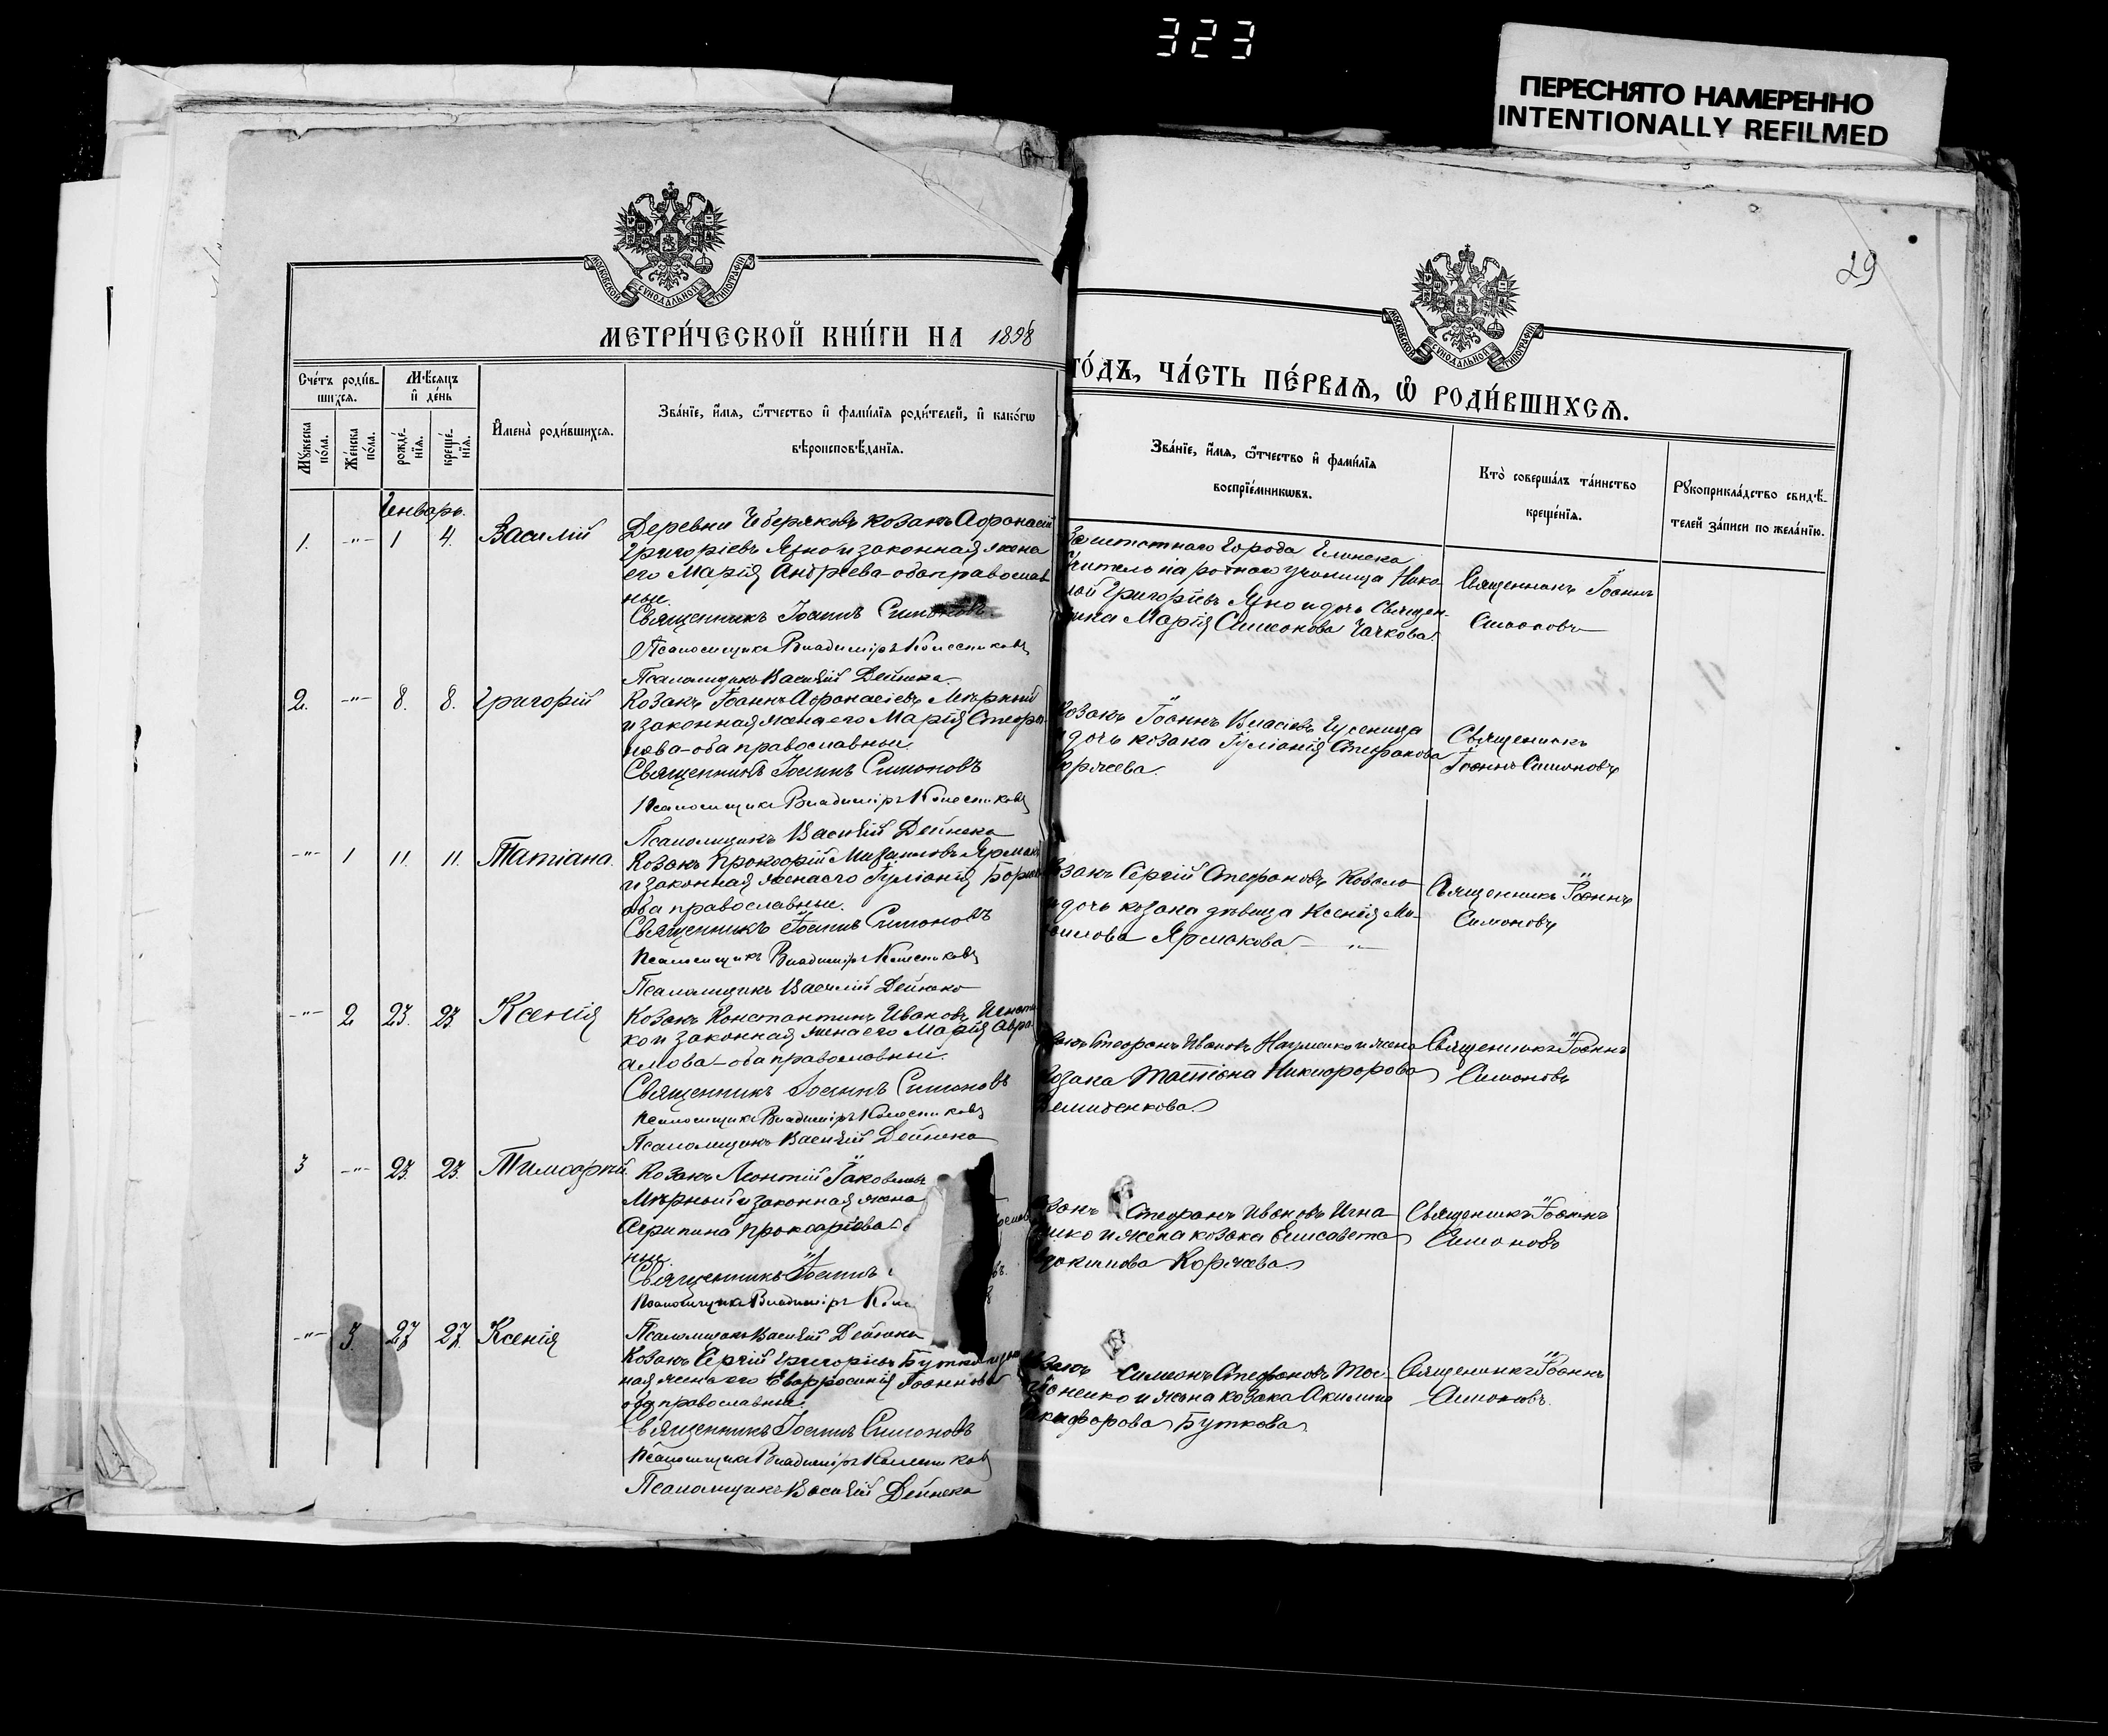 323
ПЕРЕСНЯТО НАМЕРЕННО
INTENTIONALLY REFILMED
29
МОСКОВСКОЙ СѴНОДАЛЬНОЙ ТИПОГРАФІИ
МОСКОВСКОЙ СѴНОДАЛЬНОЙ ТИПОГРАФІИ
МЕТРИ́ЧЕСКОЙ КНИ́ГИ НА 1898
ГО́ДЪ, ЧА́СТЬ ПЕ́РВАѦ, Ѡ҆ РОДИ́ВШИХСѦ.
Сче́тъ роди́в-
шихсѧ.
Мꙋ́жеска по́ла.
Же́нска по́ла.
Мѣ́сѧцъ и҆ де́нь
рожде́-нїѧ.
креще́-нїѧ.
И҆мена̀ роди́вшихсѧ.
Зва́нїе, и҆́мѧ, ѻ҆́тчество и҆ фами́лїѧ роди́телей, и҆ како́гѡ
вѣроисповѣ́данїѧ.
Зва́нїе, и҆́мѧ, ѻ҆́тчество и҆ фами́лїѧ
воспрїе́мникѡвъ.
Кто̀ соверша́лъ та́инство
креще́нїѧ.
Рꙋкоприкла́дство свидѣ́-
телей за́писи по жела́нїю.
Январь.
1. -"- 1 4. Василій
Деревни Козакъ Афонасій
Григоріевъ Яхно и законная жена
его Марія Андреева - оба православ
ные.
Священникъ Іоаннъ Симоновъ
Псаломщикъ Владиміръ Колесниковъ
Псаломщикъ Василій Дейнека
Заштатного Города Глинска
Учитель народного училища Нико-
лай Григоріевъ Яхно и дочь Священ-
ника Марія Симонова Чачкова.
Священникъ Іоаннъ
Симоновъ
2. -"- 8. 8. Григорій
Козакъ Іоаннъ Афонасіевъ Мѣрный
и законная жена его Марія Стефа-
нова - оба православные
Священникъ Іоаннъ Симоновъ
Псаломщикъ Владиміръ Колесниковъ
Псаломщикъ Василій Дейнека
Козакъ Іоаннъ Власіевъ Гусеница
и дочь козака Іуліанія Стефанова
Коржева.
Священникъ
Іоаннъ Симоновъ
-"- 1 11. 11. Татіана.
Козакъ Прокофій Михаиловъ Ярмак
и законная жена его Іуліанія
оба православные.
Священникъ Іоаннъ Симоновъ
Псаломщикъ Владиміръ Колесниковъ
Псаломщикъ Василій Дейнека
Козакъ Сергій Стефановъ Ковало
и дочь козака дѣвица Ксенія Ми-
хаилова Ярмакова -"-
Священникъ Іоаннъ
Симоновъ
-"- 2 23. 23 Ксенія
Козакъ Константинъ Ивановъ Игнат
ко и законная жена его Марія Авра-
амова - оба православные.
Священникъ Іоаннъ Симоновъ
Псаломщикъ Владиміръ Колесниковъ
Псаломщикъ Василій Дейнека
Козакъ Стефанъ Ивановъ Науменко и жена
козака Татіана Никифорова
Священникъ Іоаннъ
Симоновъ
3 -"- 23. 23. Тимофей.
Козакъ Леонтій Іаковлевъ
Мѣрный и законная жена
Агрипина Прокофіева
ные.
Священникъ Іоаннъ
Псаломщикъ Владиміръ
Псаломщикъ Василій Дейнека
Стефанъ Ивановъ Игна-
тенко и жена козака Елисавета
Коржева.
Священникъ Іоаннъ
Симоновъ
-"- 3. 27 27. Ксенія
Козакъ Сергій Григоріевъ Бутко и закон
ная жена его Евфросинія Іоаннова
оба православные.
Священникъ Іоаннъ Симоновъ
Псаломщикъ Владиміръ Колесниковъ
Псаломщикъ Василій Дейнека
Козакъ Симеонъ Стефановъ
и жена козака Акилина
Никифорова Буткова
Священникъ Іоаннъ
Симоновъ.